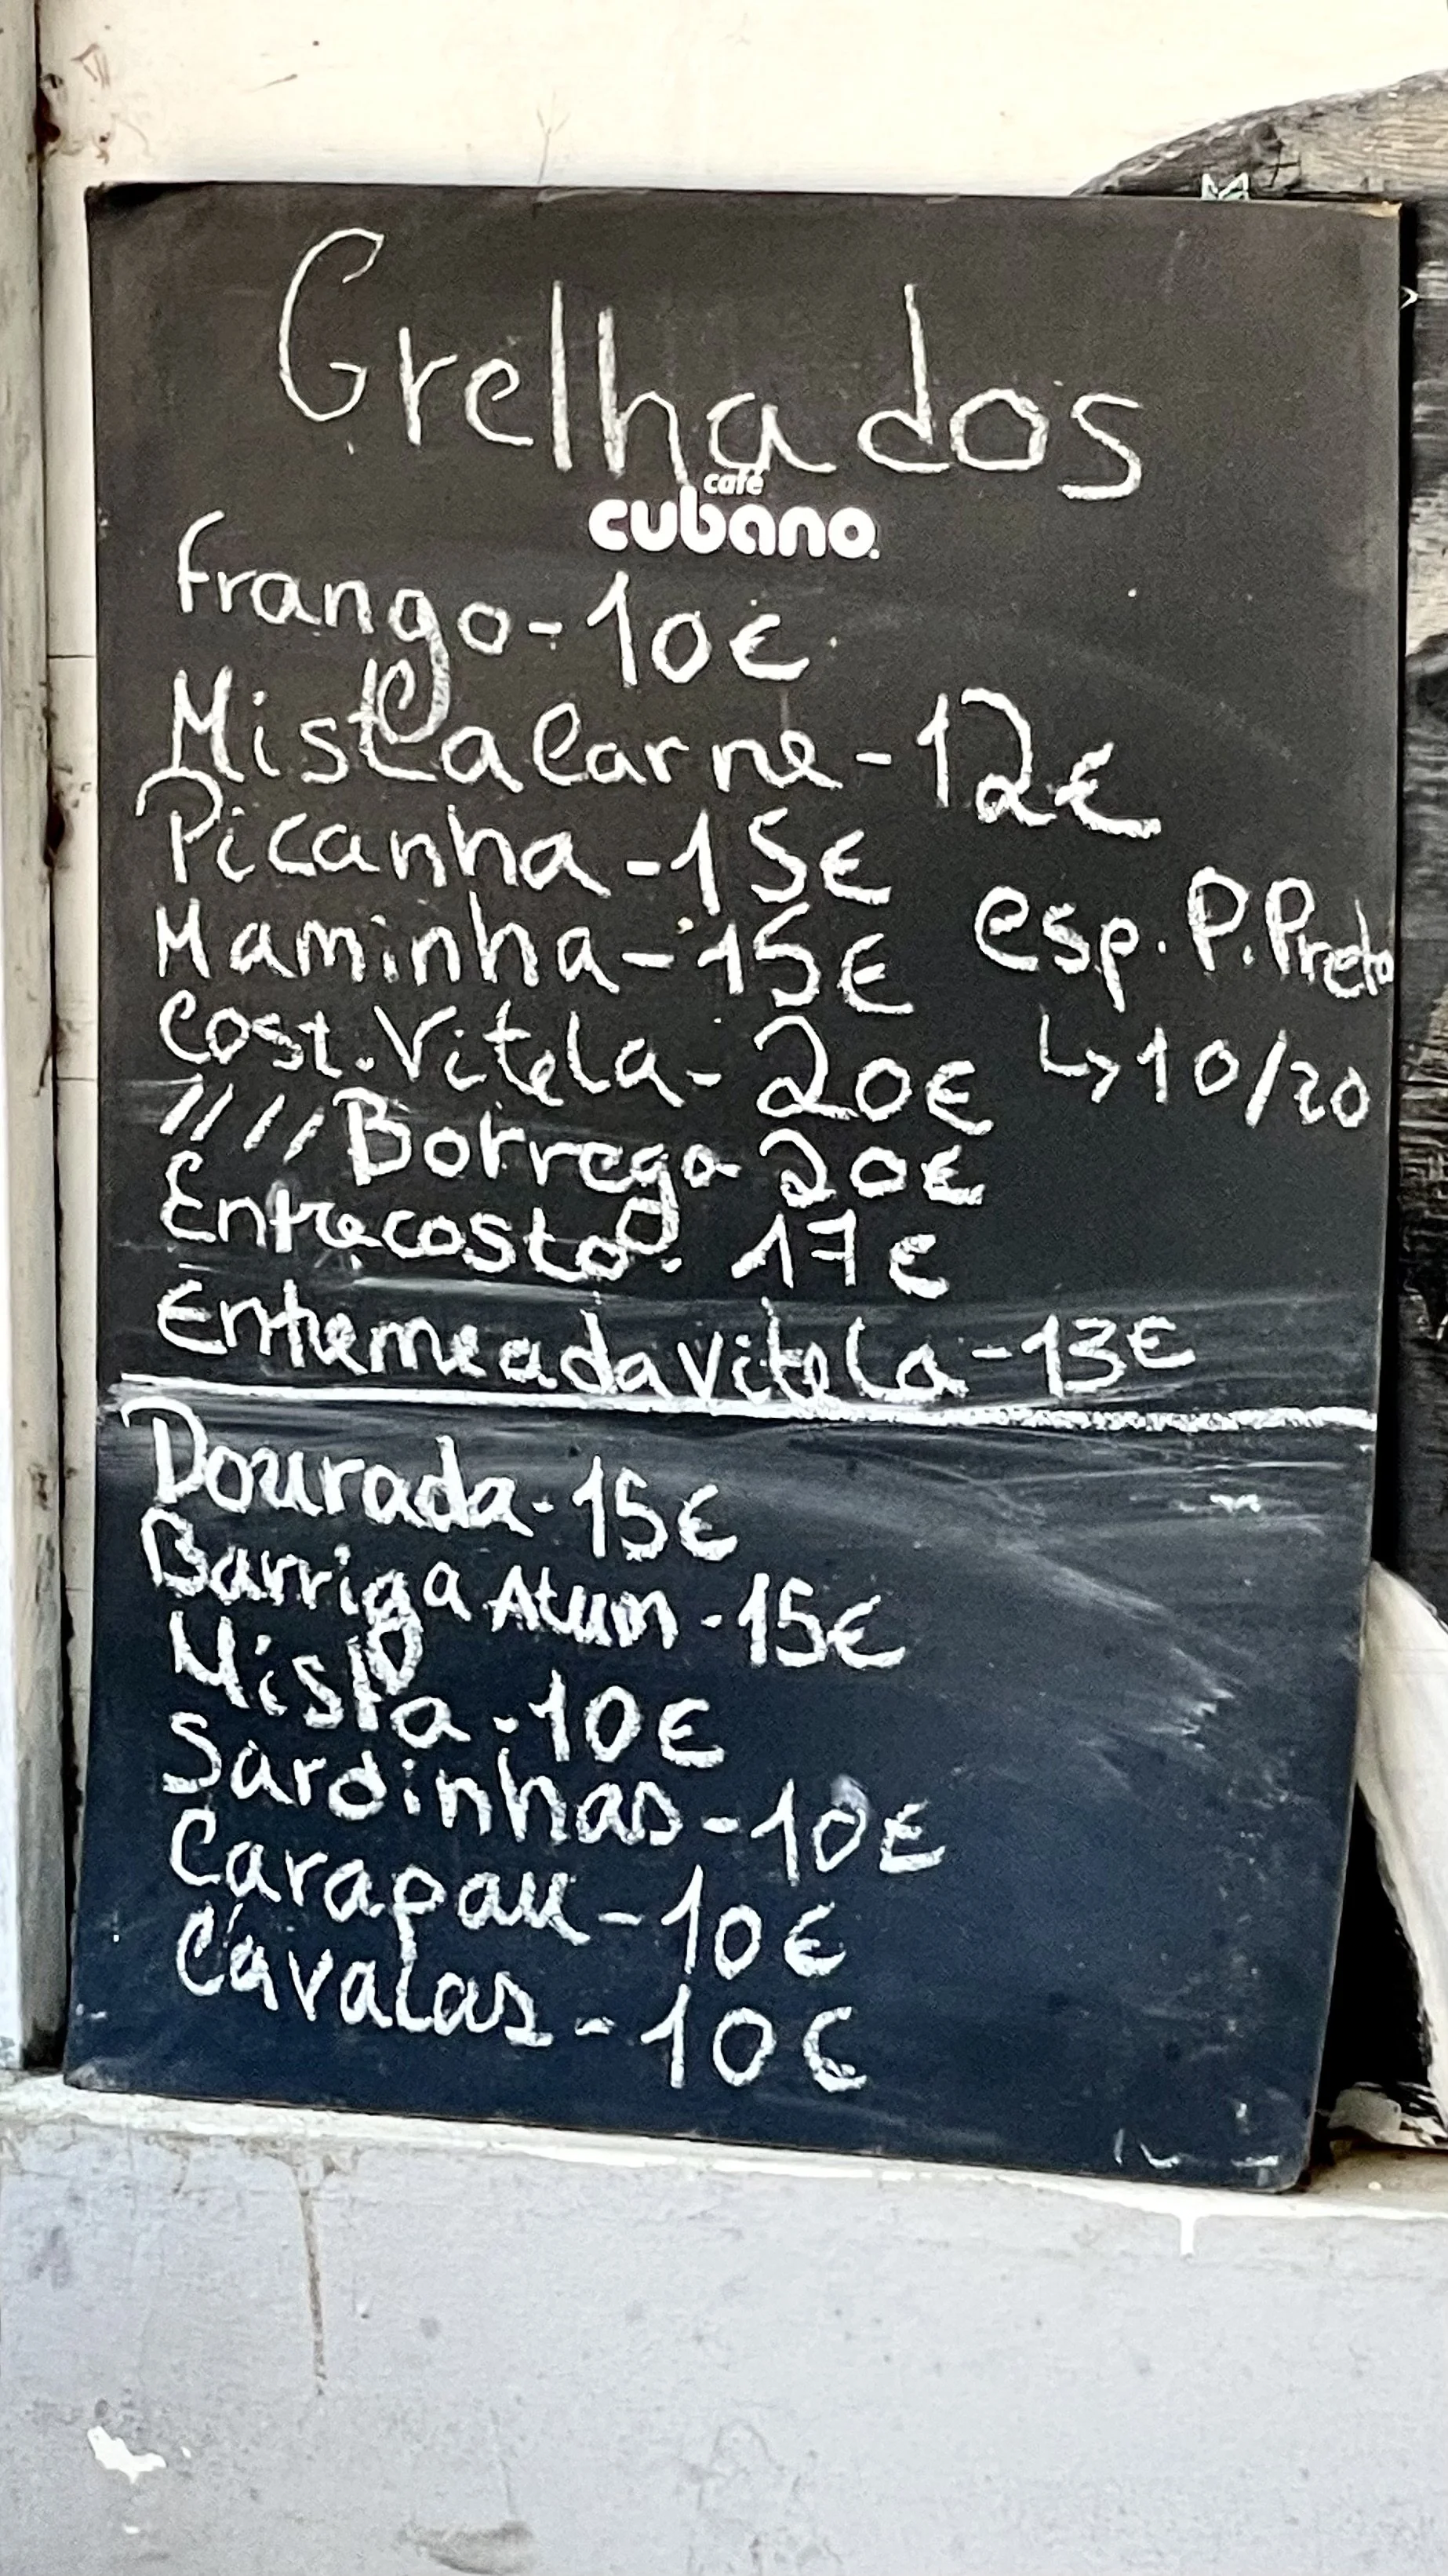 Grelhados
café
cubano.
frango - 10€
Mista Carne - 12€
Picanha - 15€
Maminha - 15€
esp. P. Preto
Cost. Vitela - 20€
↳ 10/20
//// Borrego 20€
Entrecosto. 17€
Entremeada Vitela - 13€
Dourada - 15€
Barriga Atum - 15€
Mista - 10€
Sardinhas - 10€
Carapau - 10€
Cavalas - 10€